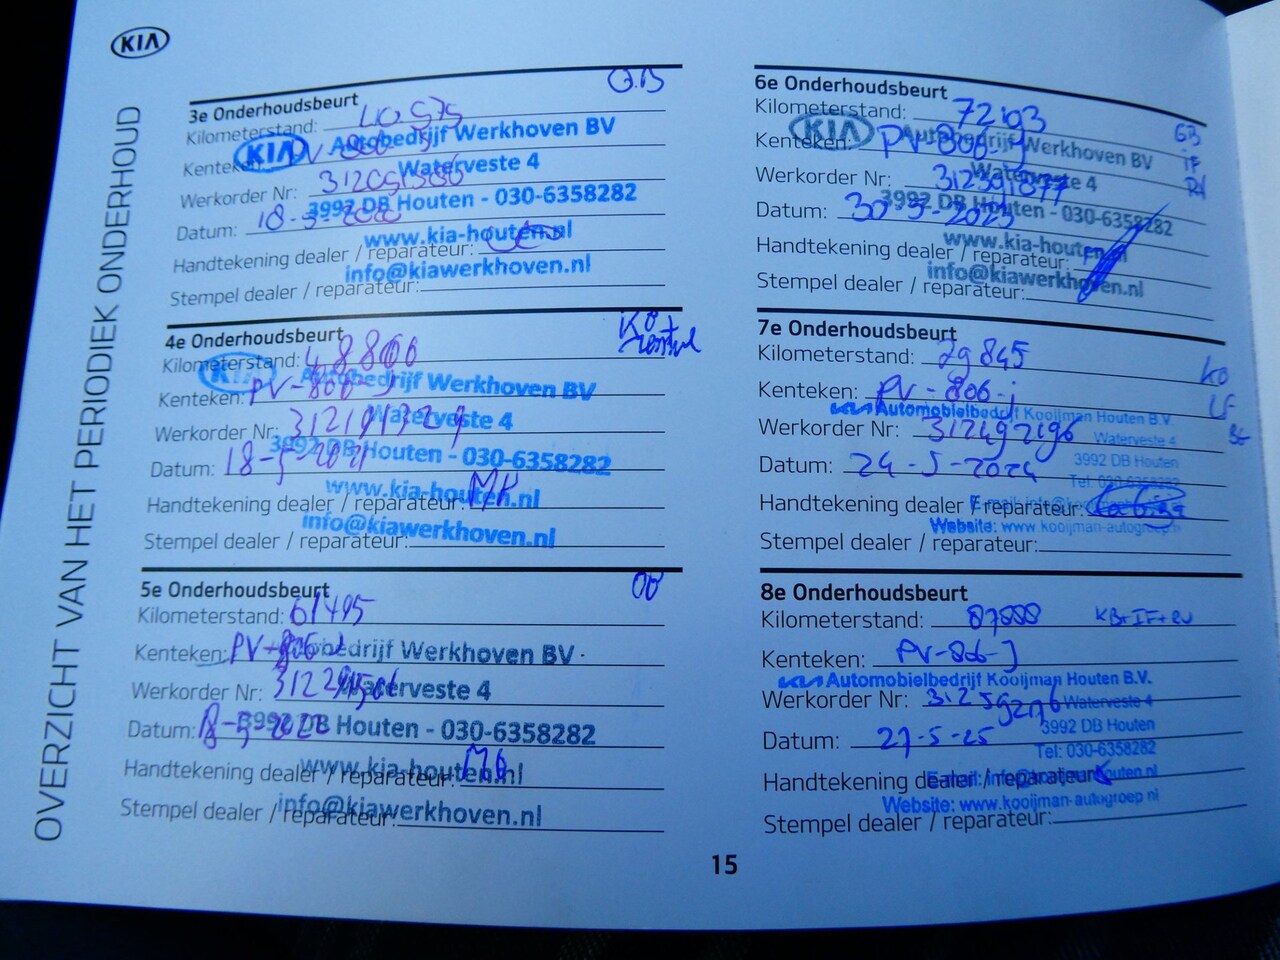 KIA
OVERZICHT VAN HET PERIODIEK ONDERHOUD
3e Onderhoudsbeurt
Kilometerstand: 40575
Kenteken:
KIA Autobedrijf Werkhoven BV
Waterveste 4
Werkorder Nr:
3992 DB Houten - 030-6358282
Datum: 18-5-2020
www.kia-houten.nl
Handtekening dealer / reparateur:
info@kiawerkhoven.nl
Stempel dealer / reparateur:
4e Onderhoudsbeurt
Kilometerstand: 48806
KIA Autobedrijf Werkhoven BV
Kenteken: PV-806-J
Waterveste 4
Werkorder Nr:
3992 DB Houten - 030-6358282
Datum: 18-5-2021
www.kia-houten.nl
Handtekening dealer / reparateur:
info@kiawerkhoven.nl
Stempel dealer / reparateur:
5e Onderhoudsbeurt
Kilometerstand: 61495
Kenteken: PV-806-J
Autobedrijf Werkhoven BV
Werkorder Nr:
Waterveste 4
Datum: 18-5-2022
3992 DB Houten - 030-6358282
www.kia-houten.nl
Handtekening dealer / reparateur:
info@kiawerkhoven.nl
Stempel dealer / reparateur:
6e Onderhoudsbeurt
Kilometerstand: 72193
KIA Autobedrijf Werkhoven BV
Kenteken: PV-806-J
Waterveste 4
Werkorder Nr: 312391877
3992 DB Houten - 030-6358282
Datum: 30-5-2023
www.kia-houten.nl
Handtekening dealer / reparateur:
info@kiawerkhoven.nl
Stempel dealer / reparateur:
7e Onderhoudsbeurt
Kilometerstand: 79845
Kenteken: PV-806-j
KIA Automobielbedrijf Kooijman Houten B.V.
Waterveste 4
Werkorder Nr: 312492196
3992 DB Houten
Datum: 24-5-2024
Handtekening dealer / reparateur:
Website: www.kooijman-autogroep.nl
Stempel dealer / reparateur:
8e Onderhoudsbeurt
Kilometerstand: 87888
Kenteken: PV-806-J
KIA Automobielbedrijf Kooijman Houten B.V.
Waterveste 4
Werkorder Nr:
3992 DB Houten
Datum: 27-5-25
Tel: 030-6358282
Handtekening dealer / reparateur:
Website: www.kooijman-autogroep.nl
Stempel dealer / reparateur:
15